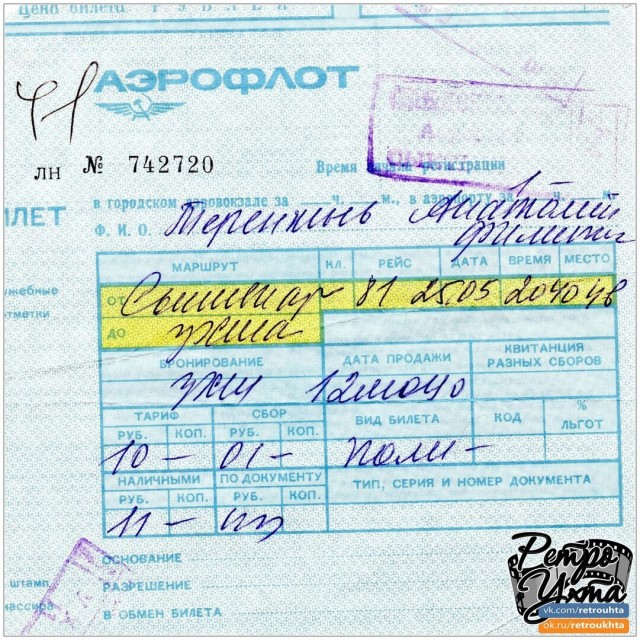 Цена билета РУБЛЕЙ
АЭРОФЛОТ
ЛН № 742720
Время начала регистрации
в городском аэровокзале за ч. м., в аэропорту за ч. м.
ИЛЕТ
Ф. И. О. Теренкинь Анатолий
Филипп
МАРШРУТ КЛ. РЕЙС ДАТА ВРЕМЯ МЕСТО
ужебные
отметки
ОТ Сыктывкар 81 25.05 2040
ДО Ухта
БРОНИРОВАНИЕ ДАТА ПРОДАЖИ КВИТАНЦИЯ РАЗНЫХ СБОРОВ
ТАРИФ СБОР ВИД БИЛЕТА КОД % ЛЬГОТ
РУБ. КОП. РУБ. КОП.
10 — 01 — полн —
НАЛИЧНЫМИ ПО ДОКУМЕНТУ ТИП, СЕРИЯ И НОМЕР ДОКУМЕНТА
РУБ. КОП. РУБ. КОП.
11 —
ОСНОВАНИЕ
штамп РАЗРЕШЕНИЕ
кассира В ОБМЕН БИЛЕТА
Ретро
Ухта
vk.com/retrouhta
ok.ru/retroukhta